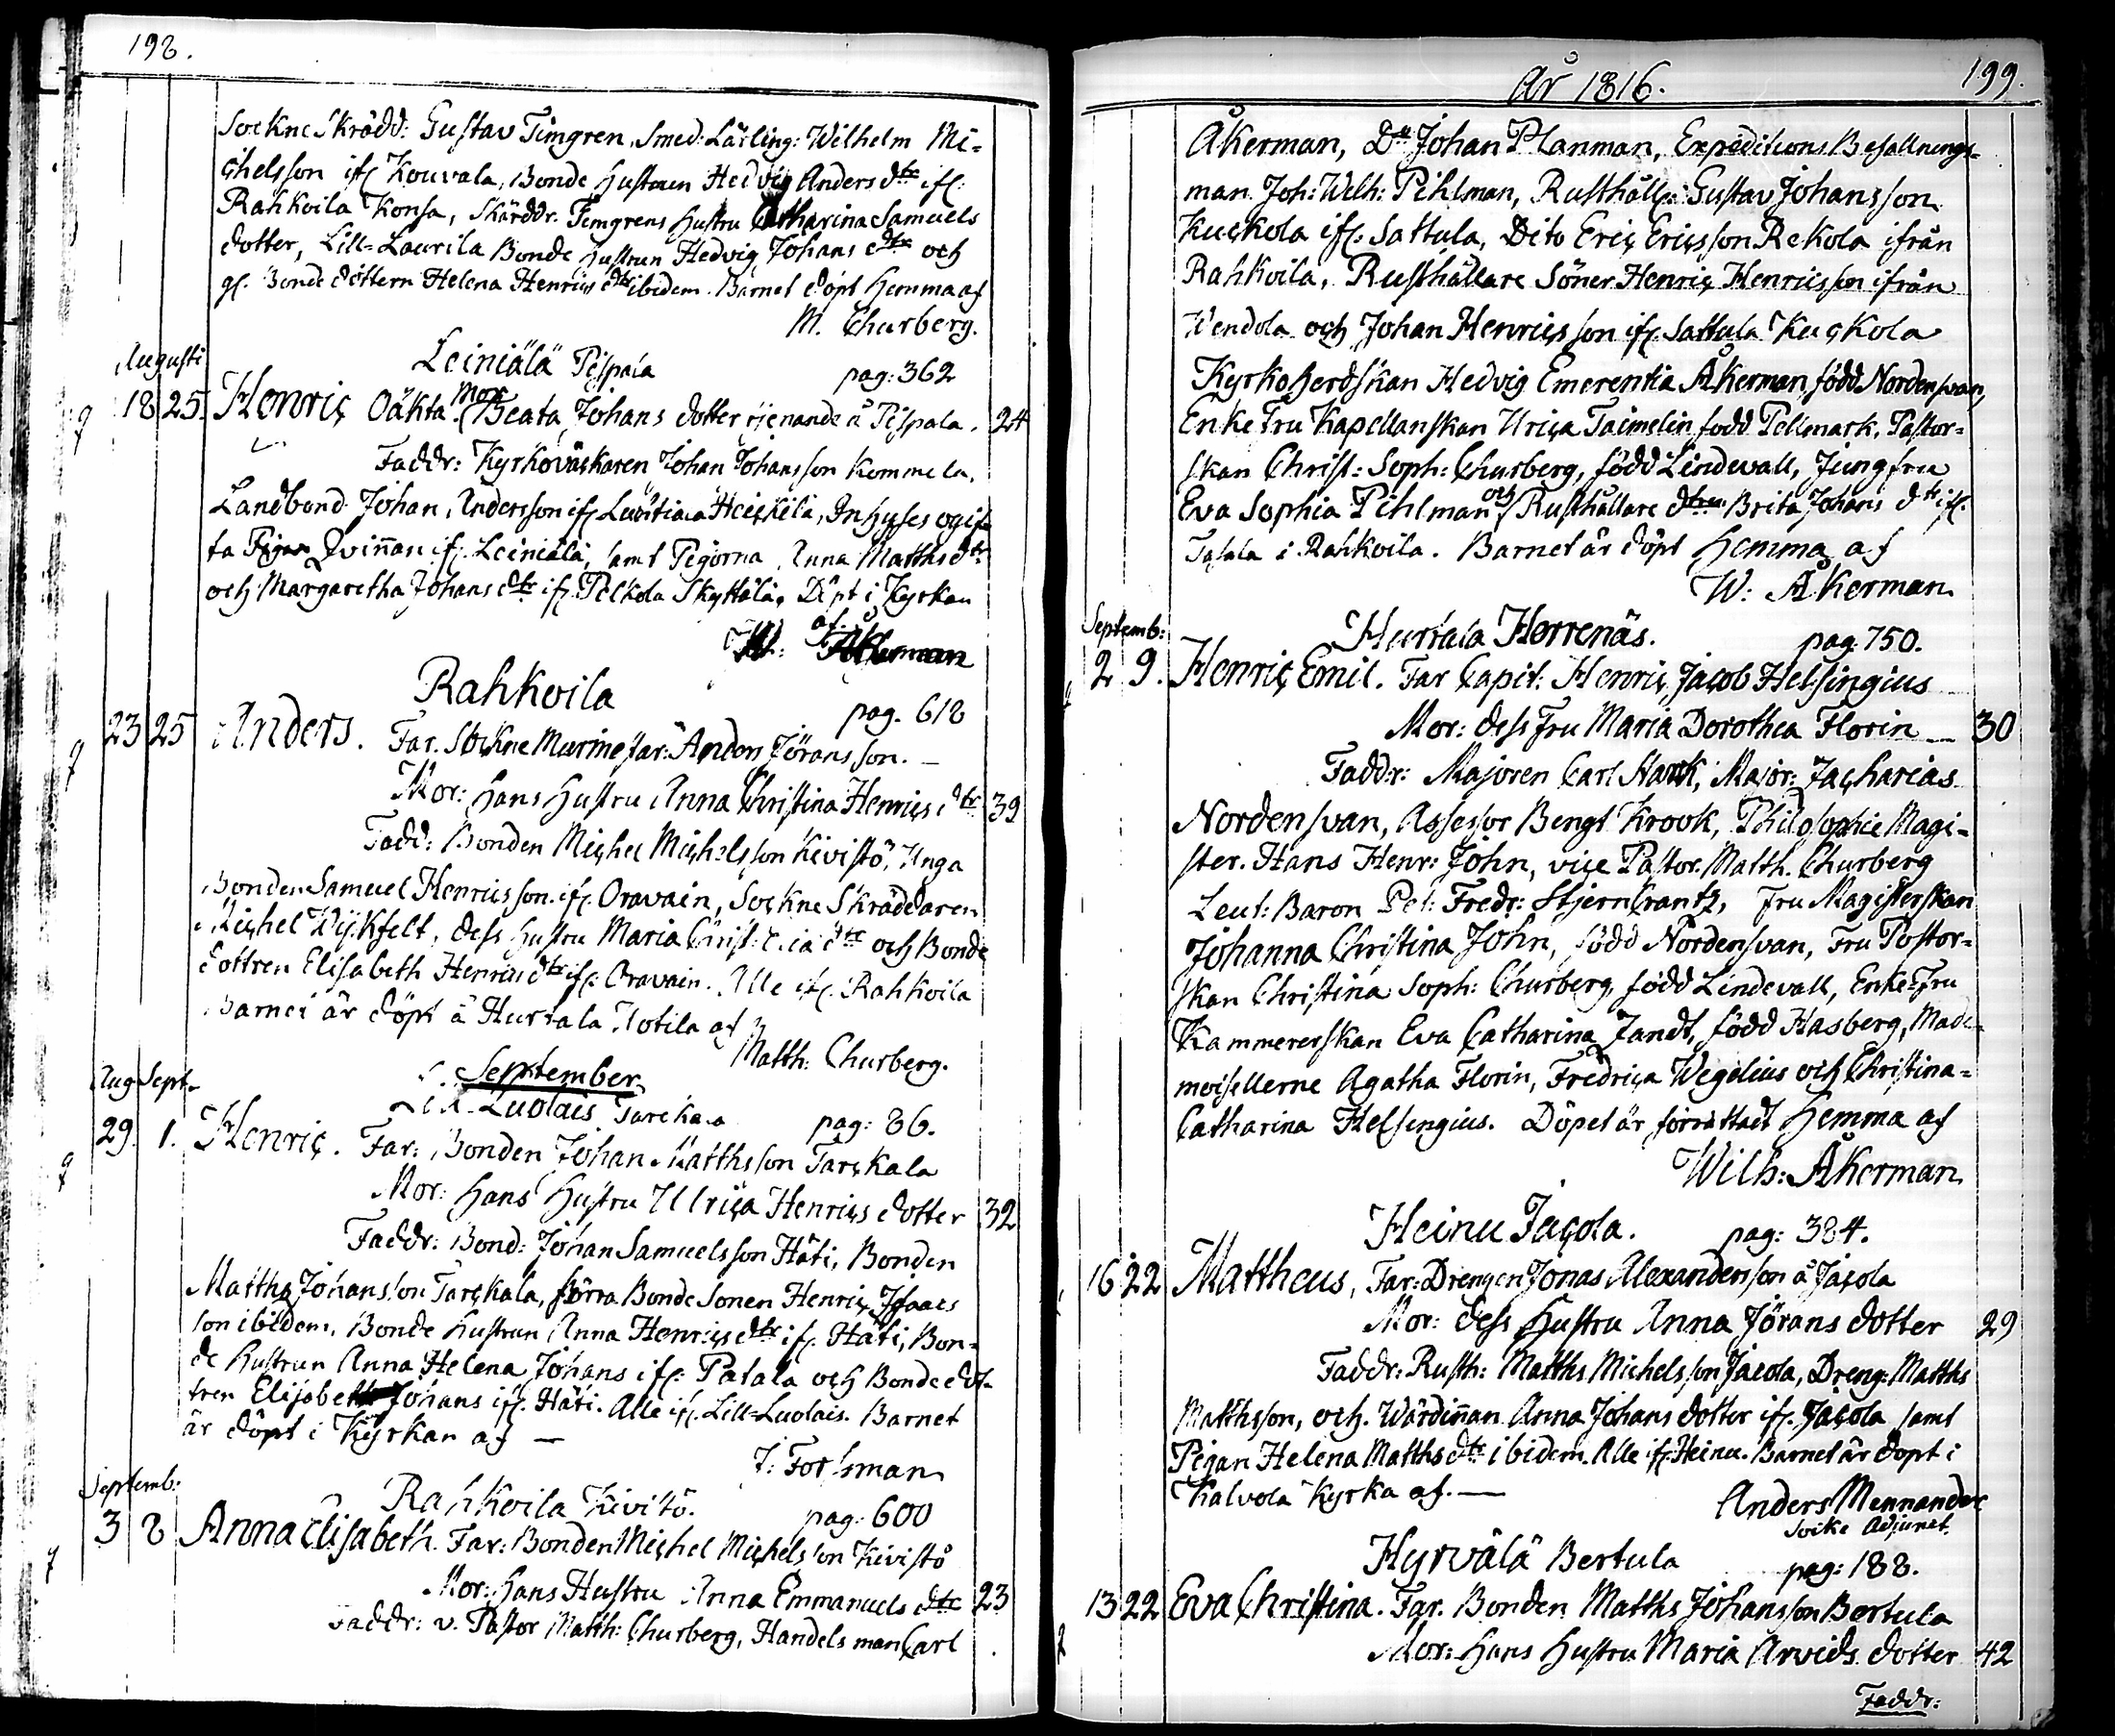 198.
Sockne Skrädd: Gustav Timgren, Smed: Lärling: Wilhelm Mi-
chelsson ifr. Kouvala, Bonde Hustrun Hedvig Anders dtr ifr.
Rahkoila Konsa, Skärddr. Timgrens Hustru Catharina Samuels
dotter, Lill-Laurila Bonde Hustrun Hedvig Johans dtr och
gl. Bonde dottern Helena Henrics dtr ibidem. Barnet döpt Hemma af
M. Churberg.
Augusti
Leiniälä Pispala pag: 362
18 25. Henric Oäkta. Mor Beata Johans dotter tjenande å Pispala. 24
Faddr: Kyrkoväcktaren Johan Johansson Kommela,
Landbond Johan Andersson ifr Heickilä, Inhyses ogif-
ta Qvinnan ifr. Leiniälä, samt Pigorna Anna Matths dtr
och Margaretha Johans dtr ifr. Pelkola Skyttälä. Döpt i Kyrkan
af
W: Åkerman
Rahkoila pag. 618
23 25 Anders. Far. Sockne Murmestar: Anders Jöransson.
Mor: Hans Hustru Anna Christina Henrics dtr 39
Fadd: Bonden Michel Michelsson Kivistö, Unga
Bonden Samuel Henricsson ifr. Oravain, Sockne Skräddaren
Michel Wijkfelt, dess Hustru Maria dtr och Bonde
dottren Elisabeth Henrics dtr ifr. Oravain. Alle ifr. Rahkoila
Barnet är döpt å Hurtala af
Matth: Churberg.
September
Aug Sept.
Lill-Luolais Tarckala pag: 86.
29. 1. Henric. Far: Bonden Johan Matthsson Tarckala
Mor: Hans Hustru Ulrica Henrics dotter 32
Faddr: Bond: Johan Samuelsson Häti, Bonden
Matths Johansson Tarckala, förra Bonde Sonen Henric Isaacs
son ibidem, Bonde Hustrun Anna Henrics dtr ifr. Häti, Bon-
de Hustrun Anna Helena Johans ifr: Patala och Bonde dot-
tren Elisabeth Johans ifr. Häti. Alle ifr. Lill-Luolais. Barnet
är döpt i Kyrkan af —
J: Forsman
Septemb:
Rahkoila Kivistö. pag: 600
3 8 Anna Elisabeth. Far: Bonden Michel Michelsson Kivistö
Mor: Hans Hustru Anna Emmanuels dtr 23
Faddr: v. Pastor Matth: Churberg, Handelsman Carl
År 1816. 199.
Åkerman, Do Johan Planman, Expeditions Befallnings-
man Joh: Welh: Pihlman, Rusthåll: Gustav Johansson
Kuckola ifr. Sattula, Dito Eric Ericsson Rekola ifrån
Rahkoila, Rusthållare Söner Henric Henricsson ifrån
Wendola och Johan Henricsson ifr. Sattula Kuckola
Kyrkoherdskan Hedvig Emerentia Åkerman, född Nordensvan,
Enke Fru Kapellanskan Ulrica Taimelin, född Pellmark, Pastor-
skan Christ: Soph: Churberg, född Lindevall, Jungfru
Eva Sophia Pihlman och Rusthållare dtren Brita Johans dtr ifr.
Tafala i Rahkoila. Barnet är döpt Hemma af
W: Åkerman
Septemb:
Hurtala Herrenäs. pag. 750.
2 9. Henric Emil. Far Capit: Henric Jacob Helsingius
Mor: dess Fru Maria Dorothea Florin — 30
Faddr: Majoren Carl Hanck, Major: Zacharias
Nordensvan, Assessor Bengt Krook, Philosophie Magi-
ster. Hans Henr: John, vice Pastor. Matth. Churberg
Leut: Baron Pet: Fredr: Stjerncrantz, Fru Magisterskan
Johanna Christina John, född Nordensvan, Fru Pastor-
skan Christina Soph: Churberg, född Lindevall, Enke Fru
Kammererskan Eva Catharina Zandt, född Hasberg, Made-
moisellerne Agatha Florin, Fredrica Wegelius och Christina-
Catharina Helsengius. Döpet är förrättadt Hemma af
Wilh: Åkerman
Heinu Jacola. pag: 384.
16 22 Mattheus, Far: Drengen Jonas Alexandersson å Jacola
Mor: dess Hustru Anna Jörans dotter 29
Faddr: Rusth: Matths Michelsson Jacola, Dreng: Matths
Matthsson, och Wärdinnan Anna Johans dotter ifr. Jacola samt
Pigan Helena Matths dtr ibidem. Alle ifr. Heinu. Barnet är döpt i
Kalvola Kyrka af. —
Anders Mennander
Socke Adjunct.
Hyrvälä Bertula pag: 188.
13 22 Eva Christina. Far. Bonden Matths Johansson Bertula
Mor: Hans Hustru Maria Arvids dotter 42
Faddr: